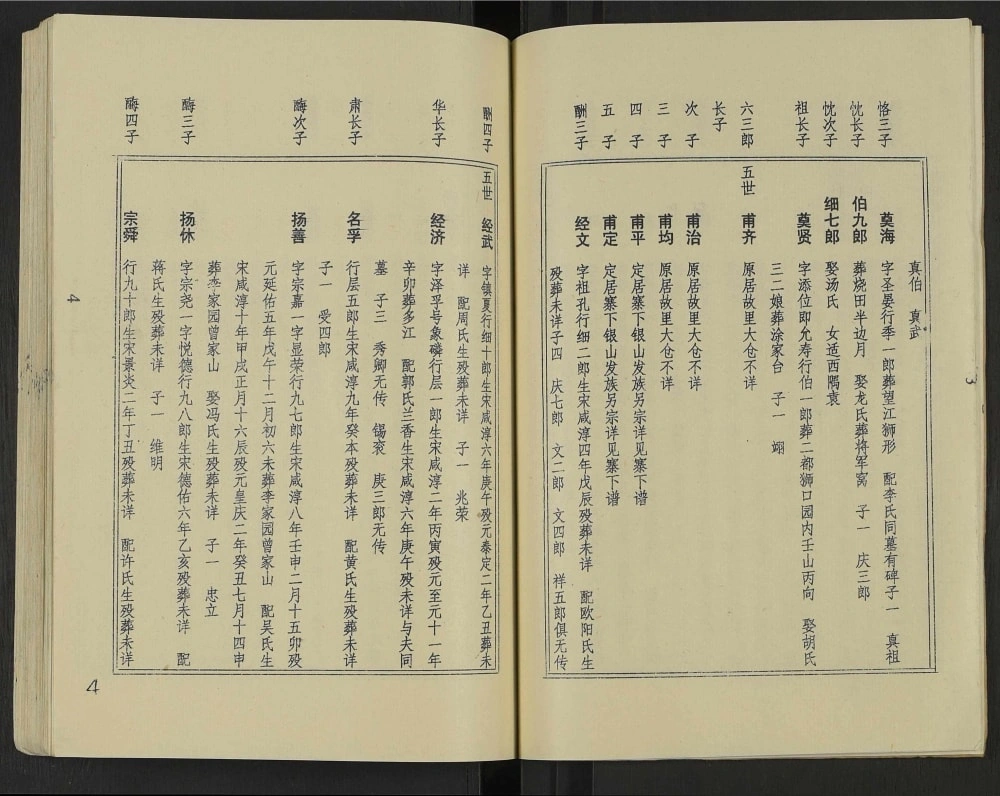 恪三子 奠海 字圣晏行季一郎葬望江狮形 配李氏同墓有碑子一 真祖
真伯 真武
忱长子 伯九郎 葬烧田半边月 娶龙氏葬将军窝 子一 庆三郎
忱次子 细七郎 娶汤氏 女适西隅袁
祖长子 奠贤 字添位即允寿行伯一郎葬二都狮口园内壬山丙向 娶胡氏
三二娘葬涂家台 子一 翊
五世
六三郎
长子 甫齐 原居故里大仓不详
次子 甫治 原居故里大仓不详
三子 甫均 原居故里大仓不详
四子 甫平 定居寨下银山发族另宗详见寨下谱
五子 甫定 定居寨下银山发族另宗详见寨下谱
酬三子 经文 字祖孔行细二郎生宋咸淳四年戊辰殁葬未详 配欧阳氏生
殁葬未详子四 庆七郎 文二郎 文四郎 祥五郎俱无传
3
五世
酬四子 经武 字镇夏行细十郎生宋咸淳六年庚午殁元泰定二年乙丑葬未
详 配周氏生殁葬未详 子一 兆荣
华长子 经济 字泽孚号象磷行层一郎生宋咸淳二年丙寅殁元至元十一年
辛卯葬多江 配郭氏兰香生宋咸淳六年庚午殁未详与夫同
墓 子三 秀卿无传 锡衮 庚三郎无传
肃长子 名孚 行层五郎生宋咸淳九年癸本殁葬未详 配黄氏生殁葬未详
子一 受四郎
酶次子 扬善 字宗嘉一字显荣行九七郎生宋咸淳八年壬申二月十五卯殁
元延佑五年戊午十二月初六未葬李家园曾家山 配吴氏生
宋咸淳十年甲戌正月十六辰殁元皇庆二年癸丑七月十四申
葬李家园曾家山 娶冯氏生殁葬未详 子一 忠立
酶三子 扬休 字宗尧一字悦德行九八郎生宋德佑六年乙亥殁葬未详 配
蒋氏生殁葬未详 子一 维明
酶四子 宗舜 行九十郎生宋景炎二年丁丑殁葬未详 配许氏生殁葬未详
4
4